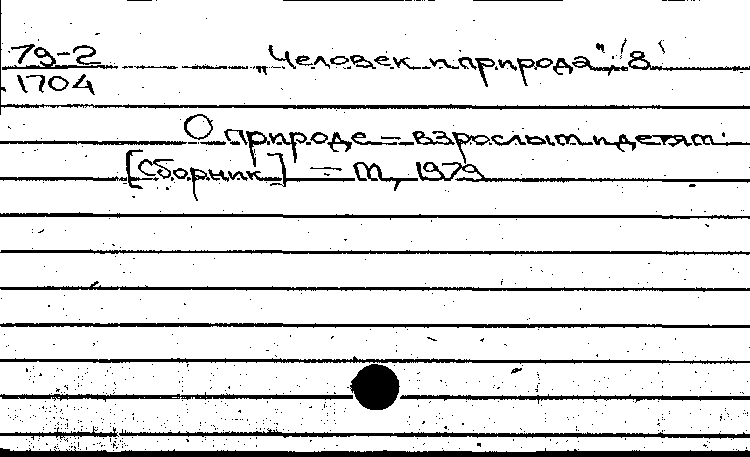 79-2 „Человек и природа", 8
1704
О природе - взрослым и детям:
[Сборник] - М, 1979